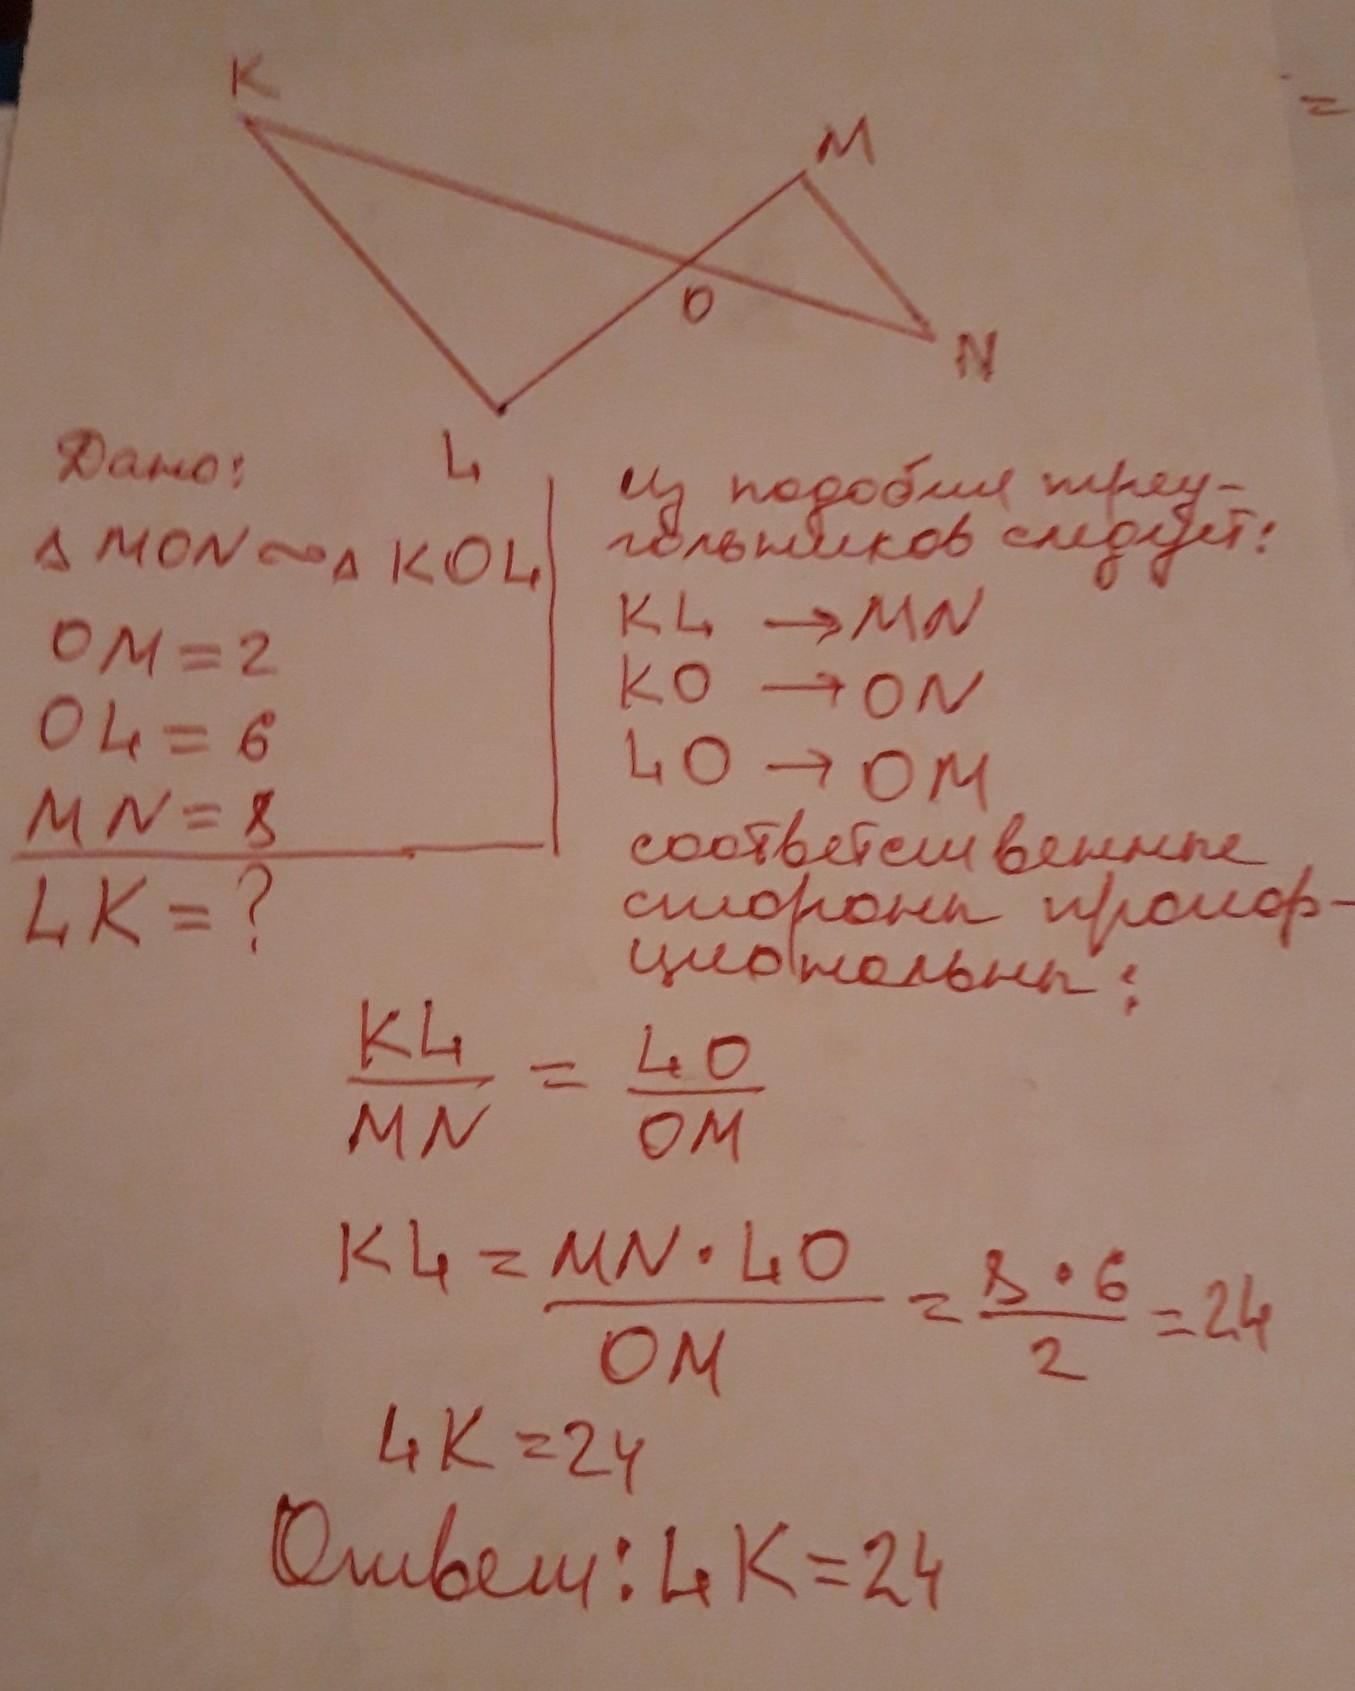 K
M
O
N
L
Дано:
△ MON ~ △ KOL
OM = 2
OL = 6
MN = 8
LK = ?
Из подобия треу-
гольников следует:
KL → MN
KO → ON
LO → OM
соответственные
стороны пропор-
циональны:
KL/MN = LO/OM
KL = MN · LO/OM = 8 · 6/2 = 24
LK = 24
Ответ: LK = 24
=